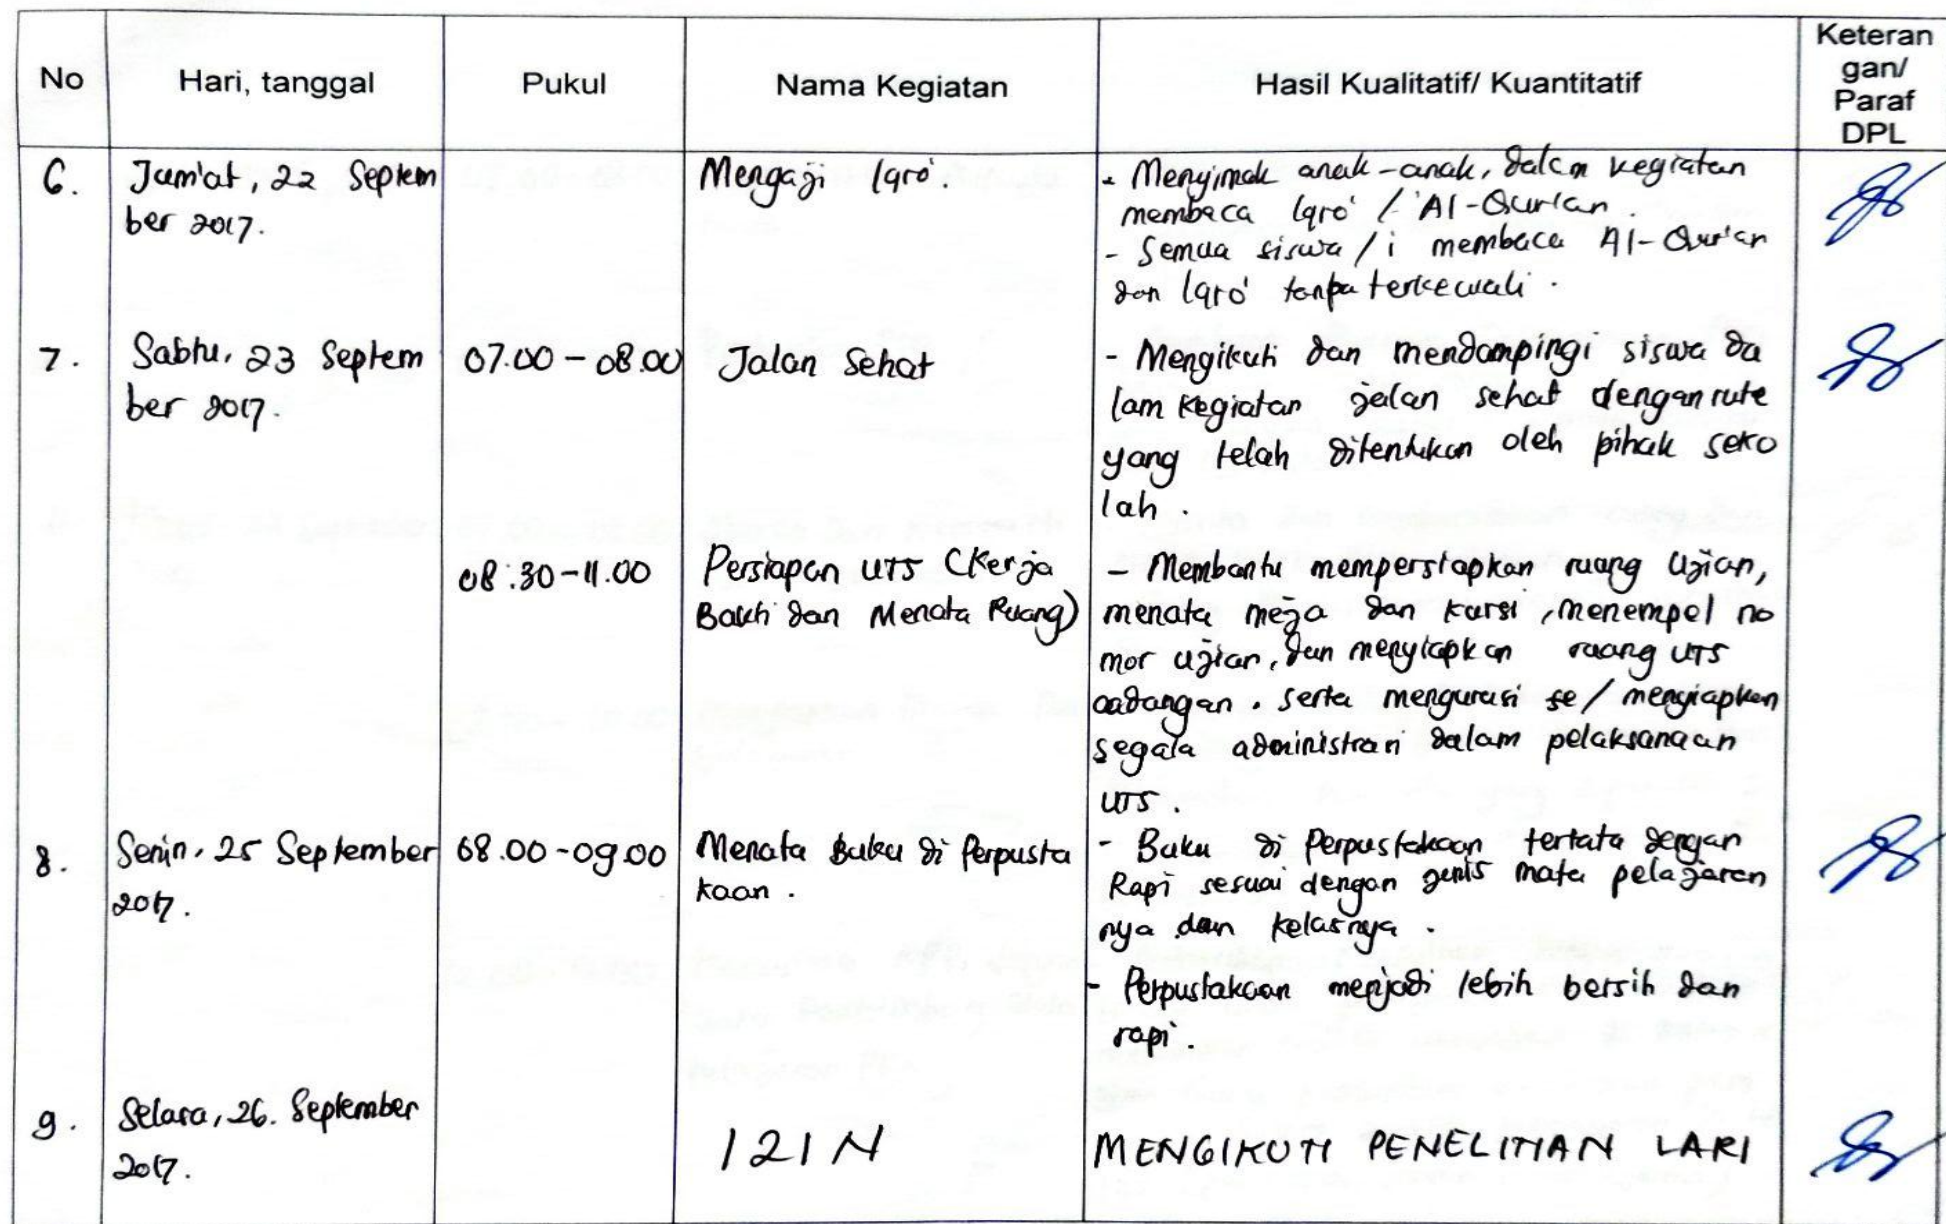 No
Hari, tanggal
Pukul
Nama Kegiatan
Hasil Kualitatif/ Kuantitatif
Keteran
gan/
Paraf
DPL
6.
Jum'at, 22 Septem
ber 2017.
Mengaji Iqro'.
- Menyimak anak-anak, dalam kegiatan
membaca Iqro' / Al-Qur'an.
- Semua siswa/i membaca Al-Qur'an
dan Iqro' tanpa terkecuali.
7.
Sabtu, 23 Septem
ber 2017.
07.00 - 08.00
Jalan Sehat
- Mengikuti dan mendampingi siswa da
lam kegiatan jalan sehat dengan rute
yang telah ditentukan oleh pihak seko
lah.
08.30 - 11.00
Persiapan UTS (Kerja
Bakti dan Menata Ruang)
- Membantu mempersiapkan ruang Ujian,
menata meja dan kursi, menempel no
mor ujian, dan menyiapkan ruang UTS
cadangan. serta mengurusi se/menyiapkan
segala administrasi dalam pelaksanaan
UTS.
8.
Senin, 25 September
2017.
08.00 - 09.00
Menata Buku di Perpusta
kaan.
- Buku di Perpustakaan tertata dengan
Rapi sesuai dengan jenis mata pelajaran
nya dan kelasnya.
- Perpustakaan menjadi lebih bersih dan
rapi.
9.
Selasa, 26. September
2017.
IZIN
MENGIKUTI PENELITIAN LARI